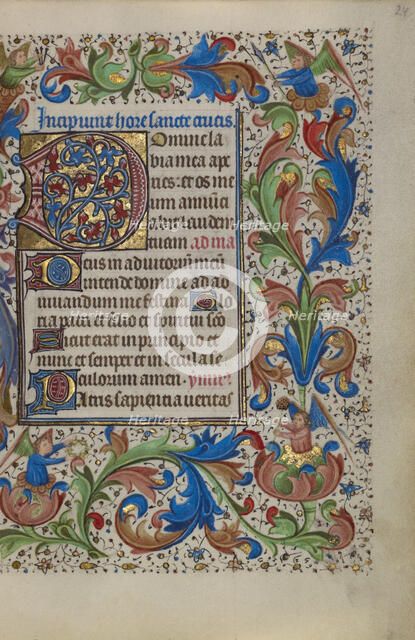 24
Incipiunt hore sancte crucis.
Domine la
bia mea ape
ries: et os me
um annūci
abit laudem
tuam ad ma
Deus in adiutoriū meū
intende domine ad ad
iuuandum me festina Glo
ria patri et filio et spiritui sco
Sicut erat in principio et
nunc et semper et in secula se
culorum amen. ymnꝰ
Patris sapientia veritas
Heritage
Heritage
Heritage
Heritage
Heritage
Heritage